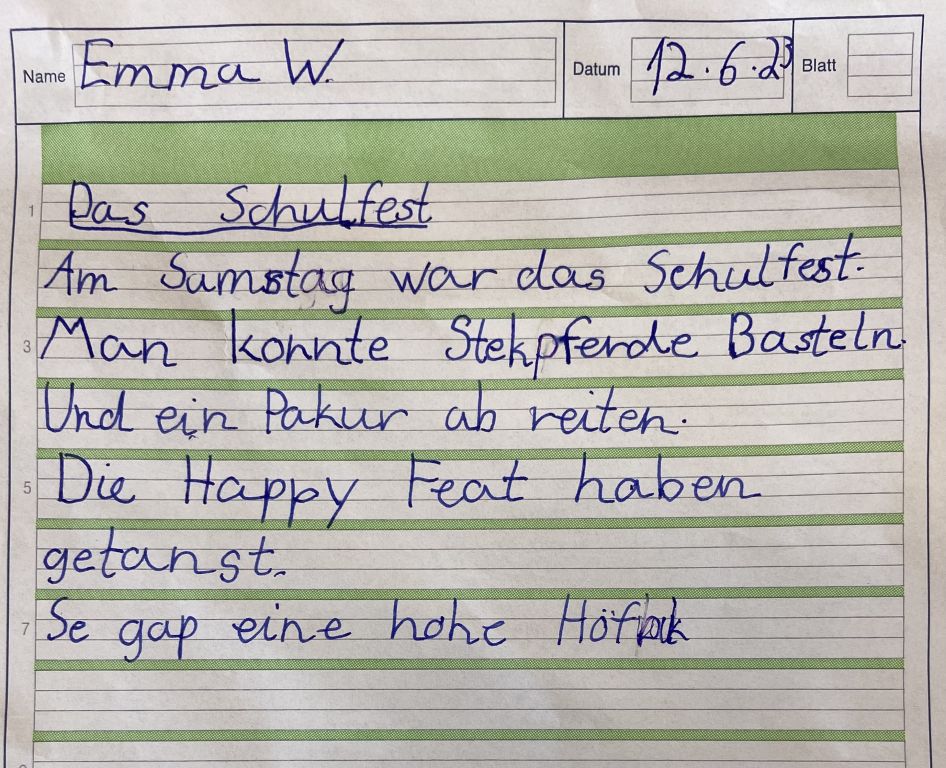 Name Emma W. Datum 12.6.23 Blatt
1 Das Schulfest
Am Samstag war das Schulfest.
3 Man konnte Stekpferde Basteln.
Und ein Pakur ab reiten.
5 Die Happy Feat haben
getanst.
7 Se gap eine hohe